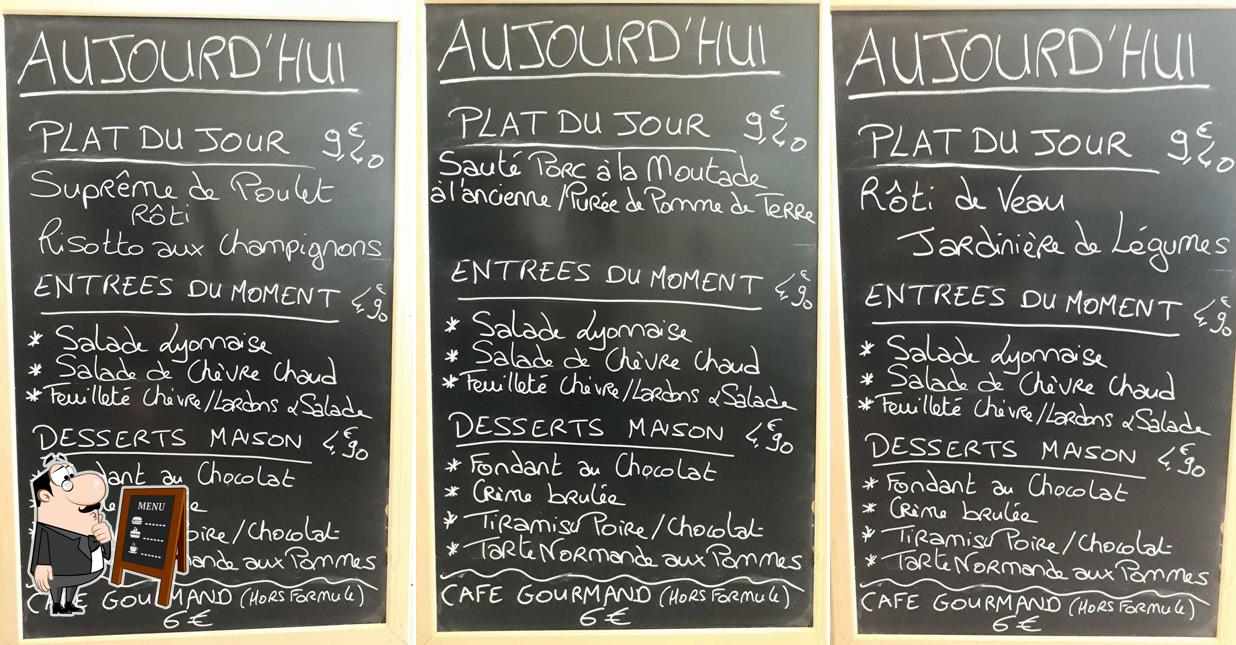 AUJOURD'HUI
PLAT DU JOUR 9,40€
Suprême de Poulet
Rôti
Risotto aux champignons
ENTREES DU MOMENT 4,90€
* Salade Lyonnaise
* Salade de Chèvre Chaud
* Feuilleté Chèvre/Lardons & Salade
DESSERTS MAISON 4,90€
ndant au Chocolat
e
oire/Chocolat
ande aux Pommes
CAFE GOURMAND (HORS FORMULE)
6€
MENU
AUJOURD'HUI
PLAT DU JOUR 9,40€
Sauté Porc à la Moutade
à l'ancienne/Purée de Pomme de Terre
ENTREES DU MOMENT 4,90€
* Salade Lyonnaise
* Salade de Chèvre Chaud
* Feuilleté Chèvre/Lardons & Salade
DESSERTS MAISON 4,90€
* Fondant au Chocolat
* Crème brulée
* Tiramisu Poire/Chocolat
* Tarte Normande aux Pommes
CAFE GOURMAND (HORS FORMULE)
6€
AUJOURD'HUI
PLAT DU JOUR 9,40€
Rôti de Veau
Jardinière de Légumes
ENTREES DU MOMENT 4,90€
* Salade Lyonnaise
* Salade de Chèvre Chaud
* Feuilleté Chèvre/Lardons & Salade
DESSERTS MAISON 4,90€
* Fondant au Chocolat
* Crème brulée
* Tiramisu Poire/Chocolat
* Tarte Normande aux Pommes
CAFE GOURMAND (HORS FORMULE)
6€